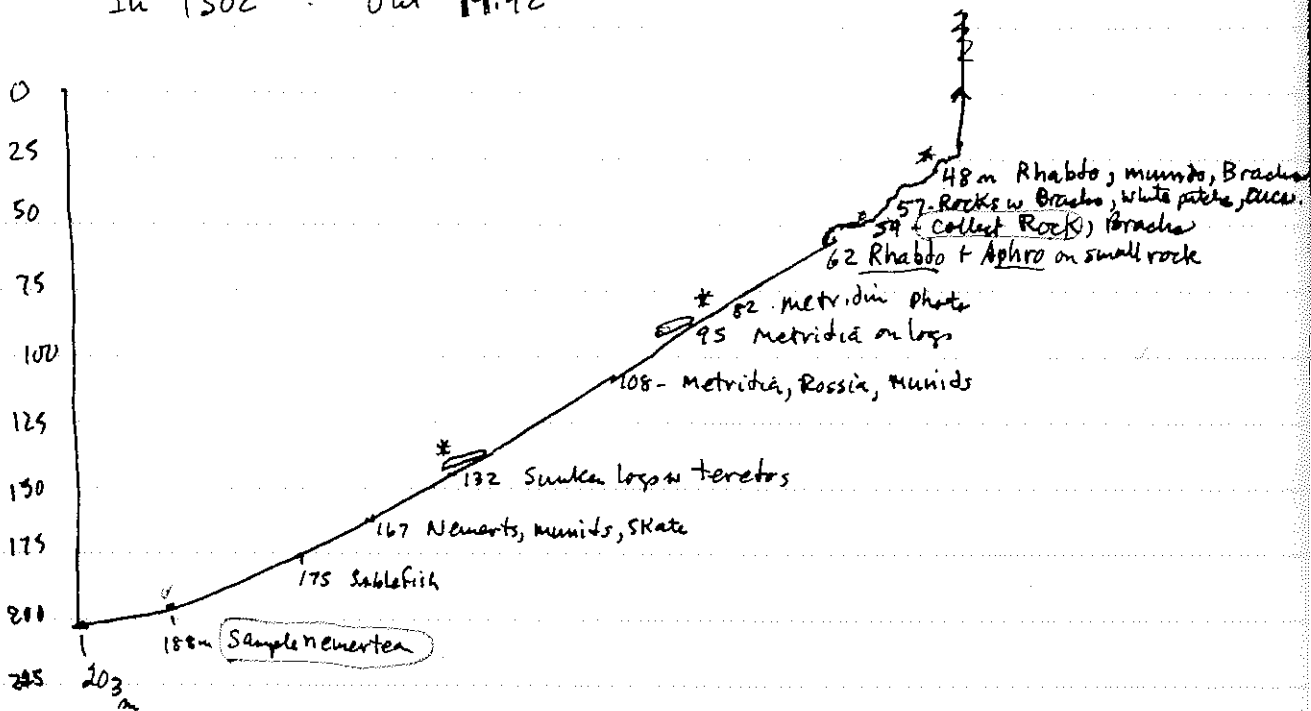 In 1302 : Out
0
25
50
75
100
125
150
175
200
225
48m Rhabdo, munids, Brachs
57 - Rocks w Brachs, white patche,
59 - collect Rock, Brachs
62 Rhabdo + Aphro on small rock
82 metridium photo
95 Metridia on logs
108 - Metridia, Rossia, Munids
132 Sunken logs w teredos
167 Nemerts, munids, Skate
175 Sablefish
188m Sample nemertea
203 m